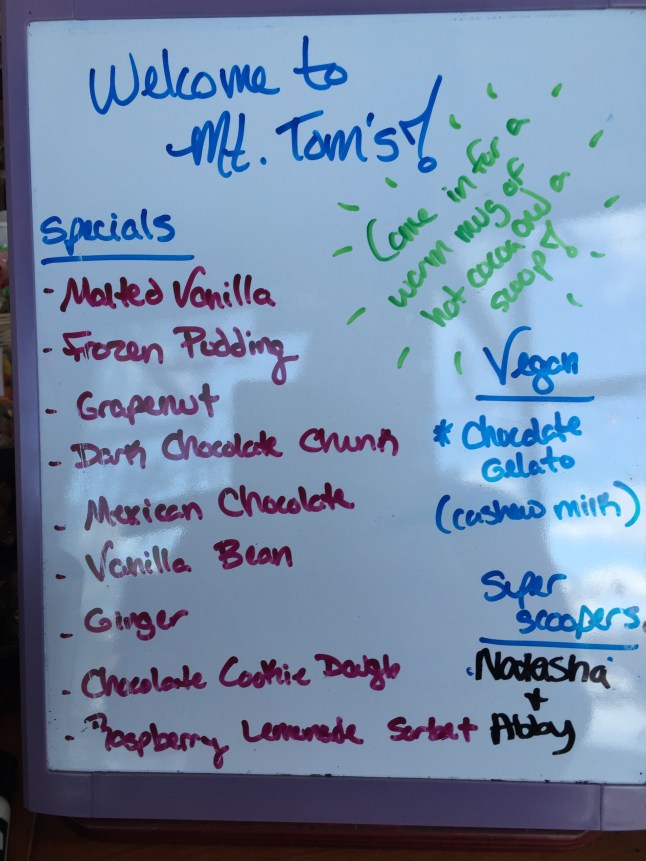 Welcome to
Mt. Tom's!
Come in for a
warm mug of
hot cocoa and a
scoop!
Specials
- Malted Vanilla
- Frozen Pudding
- Grapenut
- Dark Chocolate Chunk
- Mexican Chocolate
- Vanilla Bean
- Ginger
- Chocolate Cookie Dough
- Raspberry Lemonade Sorbet
Vegan
* Chocolate
Gelato
(cashew milk)
Super
Scoopers
Natasha
+
Abby